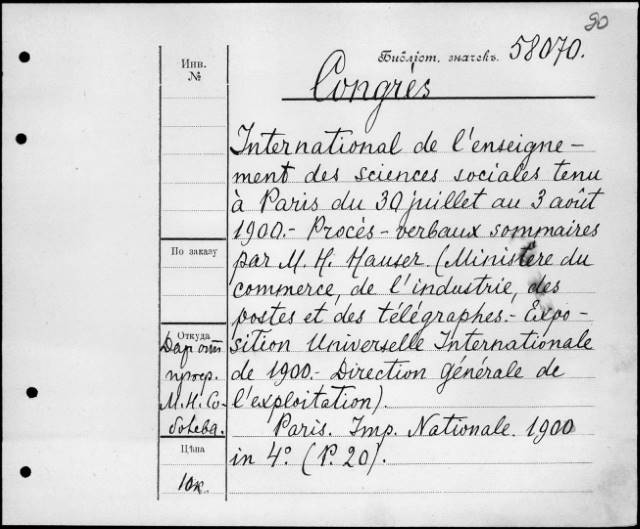 90
Библіот. значекъ. 58070.
Инв.
№
Congrès
International de l'enseigne-
ment des sciences sociales tenu
à Paris du 30 juillet au 3 août
1900.- Procès-verbaux sommaires
По заказу
par M. H. Hauser. (Ministère du
commerce, de l'industrie, des
postes et des télégraphes.- Expo-
Откуда
Даръ отъ
проф.
М. Н. Со-
болева.
sition Universelle Internationale
de 1900.- Direction générale de
l'exploitation).
Paris. Imp. Nationale. 1900
Цѣна
10к.
in 4° (P. 20).